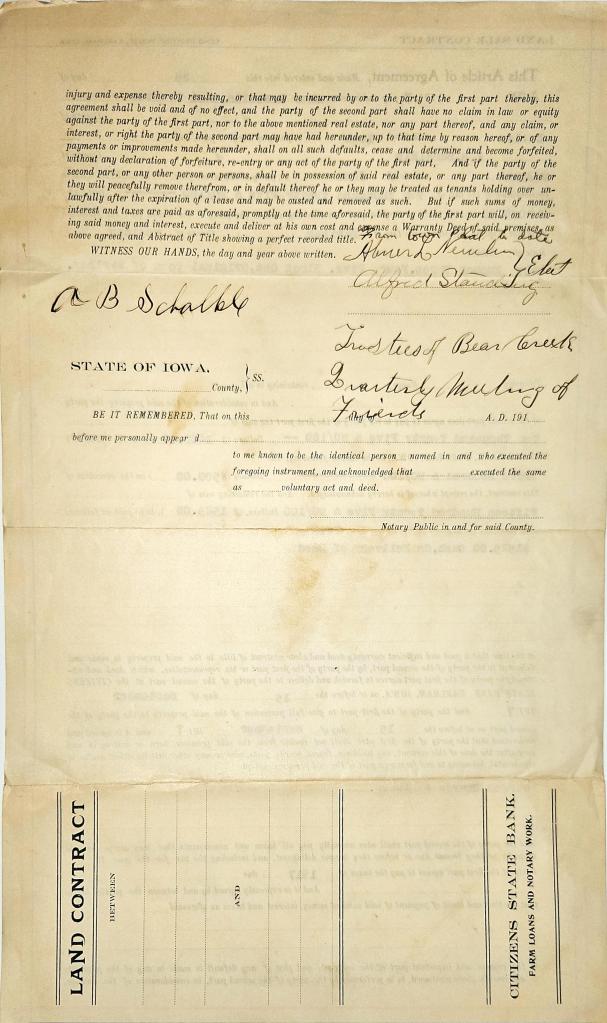 injury and expense thereby resulting, or that may be incurred by or to the party of the first part thereby, this
agreement shall be void and of no effect, and the party of the second part shall have no claim in law or equity
against the party of the first part, nor to the above mentioned real estate, nor any part thereof, and any claim, or
interest, or right the party of the second part may have had hereunder, up to that time by reason hereof, or of any
payments or improvements made hereunder, shall on all such defaults, cease and determine and become forfeited,
without any declaration of forfeiture, re-entry or any act of the party of the first part. And if the party of the
second part, or any other person or persons, shall be in possession of said real estate, or any part thereof, he or
they will peacefully remove therefrom, or in default thereof he or they may be treated as tenants holding over un-
lawfully after the expiration of a lease and may be ousted and removed as such. But if such sums of money,
interest and taxes are paid as aforesaid, promptly at the time aforesaid, the party of the first part will, on receiv-
ing said money and interest, execute and deliver at his own cost and expense a Warranty Deed of said premises, as
above agreed, and Abstract of Title showing a perfect recorded title.
to date
WITNESS OUR HANDS, the day and year above written.
Abner L
Alfred Standing
A B Schalble
Trustees of Bear Creek
Quarterly Meeting of
Friends
STATE OF IOWA,
County, } SS.
BE IT REMEMBERED, That on this day of A. D. 191
before me personally appear d
to me known to be the identical person named in and who executed the
foregoing instrument, and acknowledged that executed the same
as voluntary act and deed.
Notary Public in and for said County.
LAND CONTRACT
BETWEEN
AND
CITIZENS STATE BANK.
FARM LOANS AND NOTARY WORK.